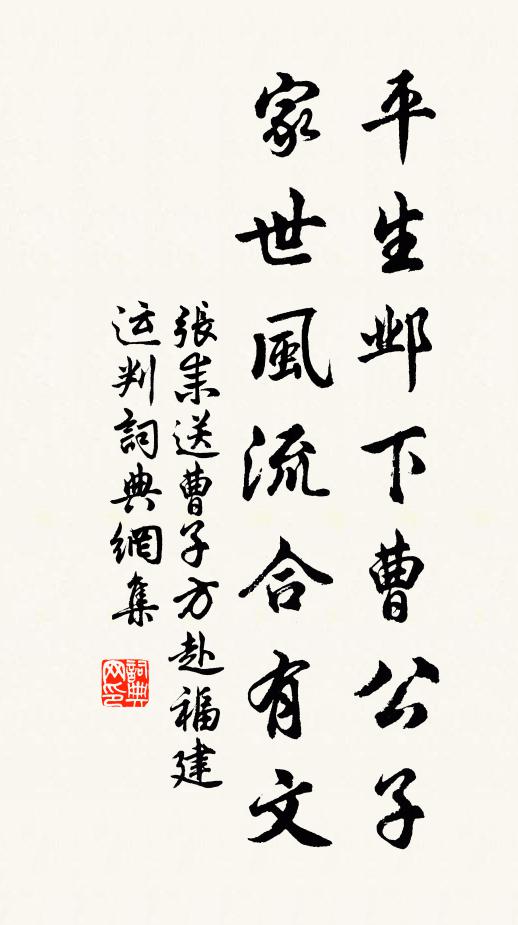 平生邺下曹公子
家世風流合有文
張耒送曹子方赴福建
运判詞典網集
詞典网印